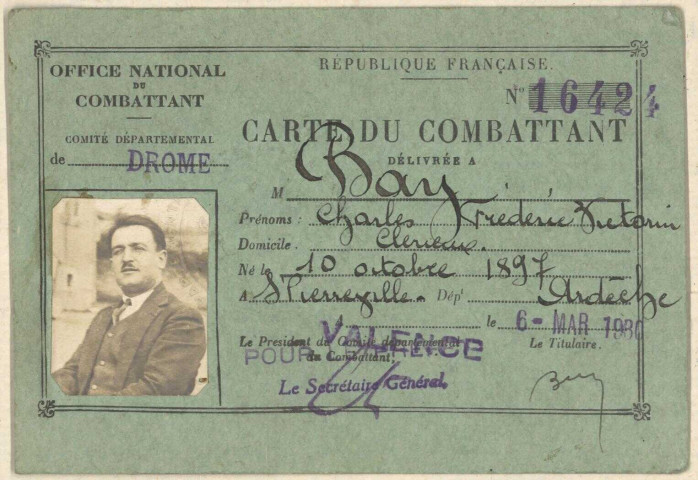 OFFICE NATIONAL
DU
COMBATTANT
COMITÉ DÉPARTEMENTAL
de DROME
RÉPUBLIQUE FRANÇAISE.
N° 16424
CARTE DU COMBATTANT
DÉLIVRÉE A
M Bay
Prénoms : Charles Frédéric Victorin
Domicile . Clérieux.
Né le 10 octobre 1897
A St Pierreville. Dépt Ardèche
A VALENCE le 6 - MAR 1930
Le Président du Comité départemental
du Combattant.
POUR
Le Titulaire.
Le Secrétaire Général.
Bay